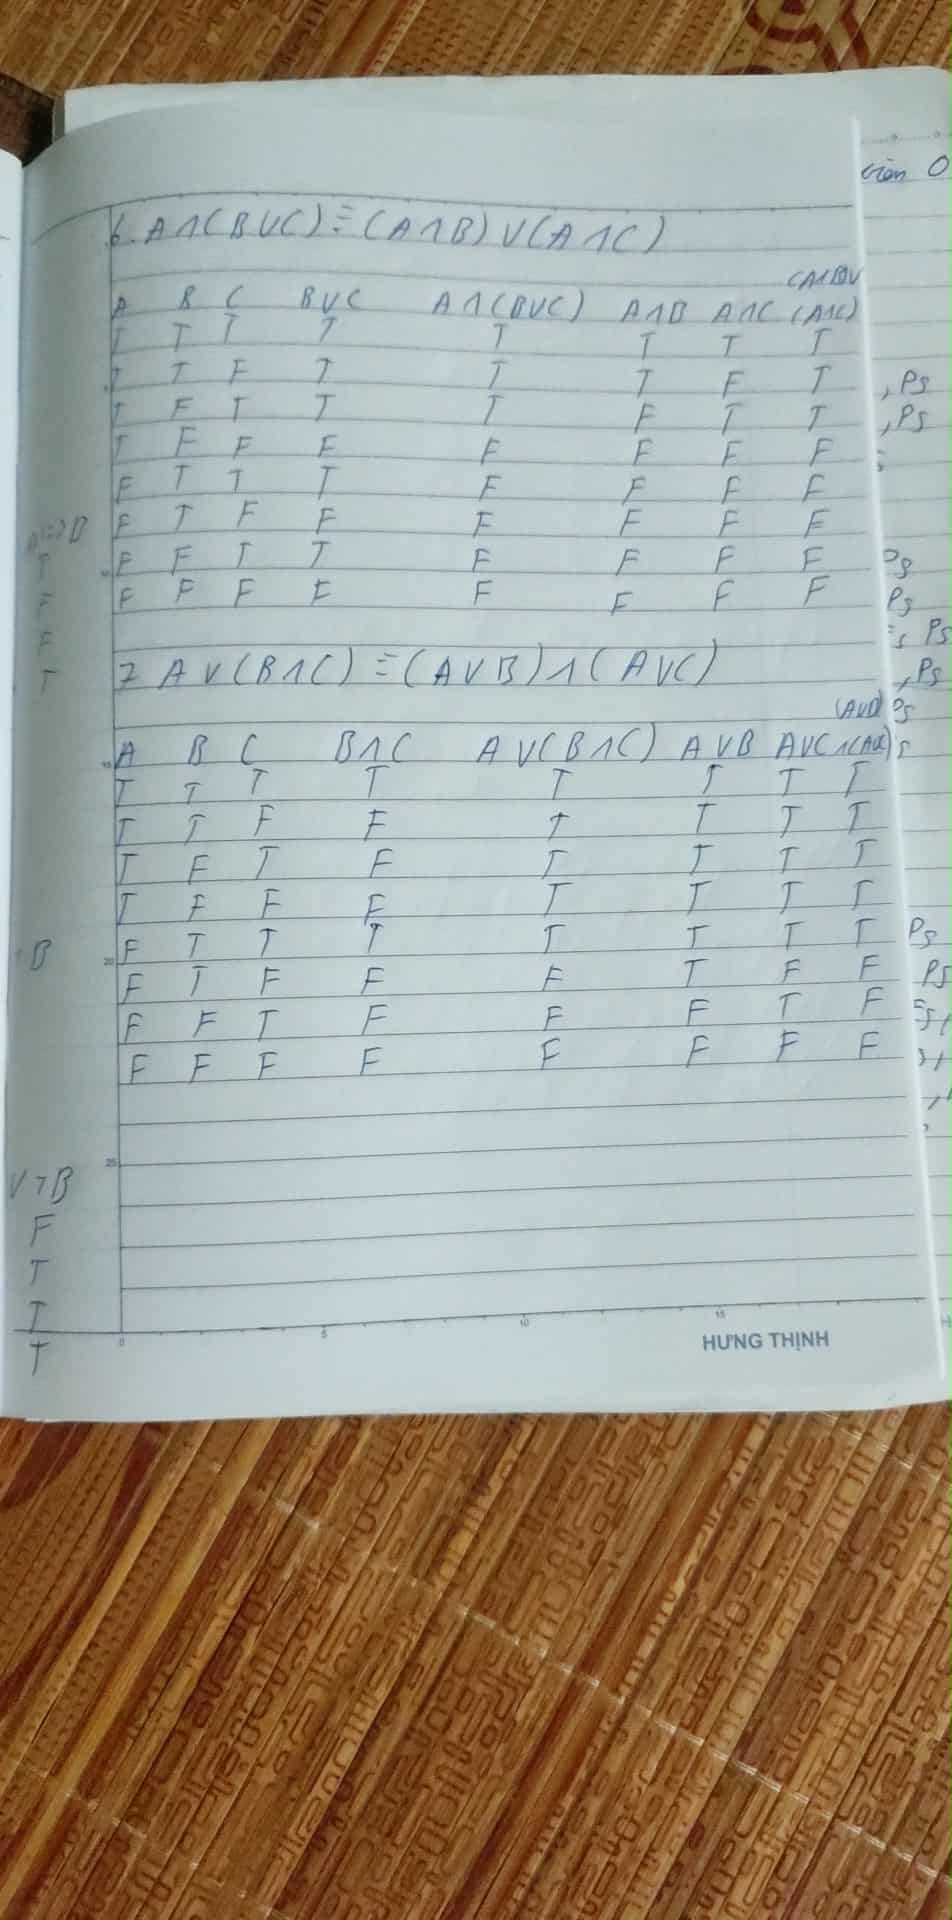 6. A∧(B∨C) ≡ (A∧B)∨(A∧C)
(A∧B)∨
A B C B∨C A∧(B∨C) A∧B A∧C (A∧C)
T T T T T T T T
T T F T T T F T
T F T T T F T T
T F F F F F F F
F T T T F F F F
F T F F F F F F
F F T T F F F F
F F F F F F F F
7 A∨(B∧C) ≡ (A∨B)∧(A∨C)
(A∨B)
A B C B∧C A∨(B∧C) A∨B A∨C ∧(A∨C)
T T T T T T T T
T T F F T T T T
T F T F T T T T
T F F F T T T T
F T T T T T T T
F T F F F T F F
F F T F F F T F
F F F F F F F F
T
F
F
T
B
∨ ¬B
F
T
T
T
0 5 10 15
HƯNG THỊNH
, Ps
, Ps
Ps
Ps
Ps
, Ps
Ps
Ps
Ps